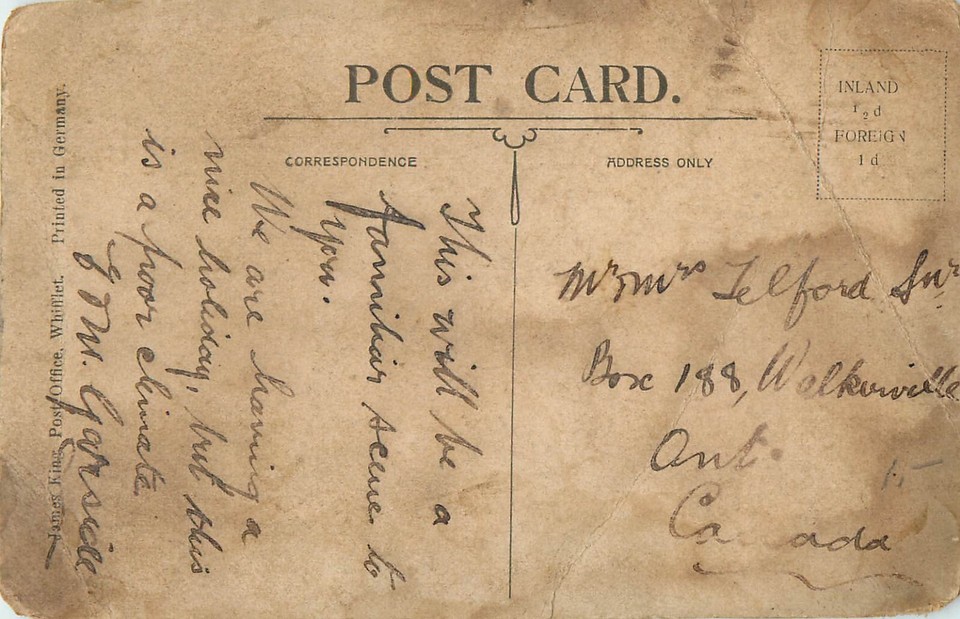 POST CARD.
CORRESPONDENCE
ADDRESS ONLY
INLAND
1/2d
FOREIGN
1d
This will be a
familiar scene to
you.
We are having a
nice holiday, but this
is a poor climate.
J & M. Garside
Mr & Mrs Telford Snr
Box 188, Walkerville
Ont.
Canada
James King, Post Office, Whifflet. Printed in Germany.